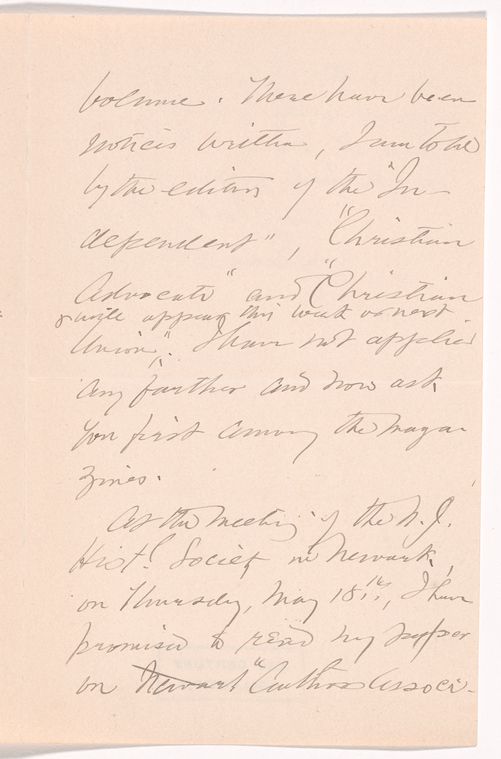 volume. There have been
notices written, I am told
by the editors of the "In-
dependent", "Christian
Advocate" and "Christian
& will appear this week or next
Union". I have not applied
any farther and now ask
you first among the maga-
zines.
At the meeting of the N.J.
Hist! Society in Newark,
on Thursday, May 18th, I have
promised to read my paper
on Newark "Authors Associ-